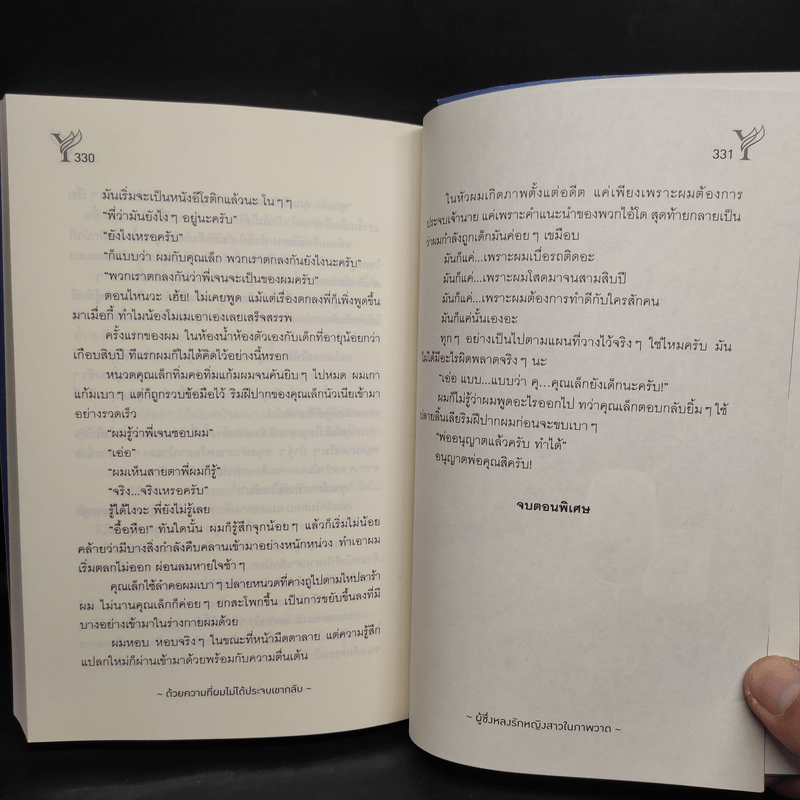 330
มันเริ่มจะเป็นหนังอีโรติกแล้วนะ โนๆๆ
"พี่ว่ามันยังไงๆ อยู่นะครับ"
"ยังไงเหรอครับ"
"ก็แบบว่า ผมกับคุณเล็ก พวกเราตกลงกันยังไงนะครับ"
"พวกเราตกลงกันว่าพี่เจนจะเป็นของผมครับ"
ตอนไหนวะ เฮ้ย! ไม่เคยพูด แม้แต่เรื่องตกลงพี่ก็เพิ่งพูดขึ้น
มาเมื่อกี้ ทำไมน้องโมเมเอาเองเลยเสร็จสรรพ
ครั้งแรกของผม ในห้องน้ำห้องตัวเองกับเด็กที่อายุน้อยกว่า
เกือบสิบปี ทีแรกผมก็ไม่ได้คิดไว้อย่างนี้หรอก
หนวดคุณเล็กทิ่มคอทิ่มแก้มผมจนคันยิบๆ ไปหมด ผมเกา
แก้มเบาๆ แต่ก็ถูกรวบข้อมือไว้ ริมฝีปากของคุณเล็กนัวเนียเข้ามา
อย่างรวดเร็ว
"ผมรู้ว่าพี่เจนชอบผม"
"เอ่อ"
"ผมเห็นสายตาพี่ผมก็รู้"
"จริง...จริงเหรอครับ"
รู้ได้ไงวะ พี่ยังไม่รู้เลย
"อื้อหือ!" ทันใดนั้น ผมก็รู้สึกจุกน้อยๆ แล้วก็เริ่มไม่น้อย
คล้ายว่ามีบางสิ่งกำลังคืบคลานเข้ามาอย่างหนักหน่วง ทำเอาผม
เริ่มตลกไม่ออก ผ่อนลมหายใจช้าๆ
คุณเล็กใช้ลำคอผมเบาๆ ปลายหนวดที่คางถูไปตามไหปลาร้า
ผม ไม่นานคุณเล็กก็ค่อยๆ ยกสะโพกขึ้น เป็นการขยับขึ้นลงที่มี
บางอย่างเข้ามาในร่างกายผมด้วย
ผมหอบ หอบจริงๆ ในขณะที่หน้ามืดตาลาย แต่ความรู้สึก
แปลกใหม่ก็ผ่านเข้ามาด้วยพร้อมกับความตื่นเต้น
~ ด้วยความที่ผมไม่ได้ประจบเขากลับ ~
331
ในหัวผมเกิดภาพตั้งแต่อดีต แค่เพียงเพราะผมต้องการ
ประจบเจ้านาย แค่เพราะคำแนะนำของพวกไอ้ใด สุดท้ายกลายเป็น
ว่าผมกำลังถูกเด็กมันค่อยๆ เขมือบ
มันก็แค่...เพราะผมเบื่อรถติดอะ
มันก็แค่...เพราะผมโสดมาจนสามสิบปี
มันก็แค่...เพราะผมต้องการทำดีกับใครสักคน
มันก็แค่นั้นเองอะ
ทุกๆ อย่างเป็นไปตามแผนที่วางไว้จริงๆ ใช่ไหมครับ มัน
ไม่ได้มีอะไรผิดพลาดจริงๆ นะ
"เอ่อ แบบ...แบบว่า คุ...คุณเล็กยังเด็กนะครับ!"
ผมก็ไม่รู้ว่าผมพูดอะไรออกไป ทว่าคุณเล็กตอบกลับยิ้มๆ ใช้
ปลายลิ้นเลียริมฝีปากผมก่อนจะขบเบาๆ
"พ่ออนุญาตแล้วครับ ทำได้"
อนุญาตพ่อคุณสิครับ!
จบตอนพิเศษ
~ ผู้ซึ่งหลงรักหญิงสาวในภาพวาด ~